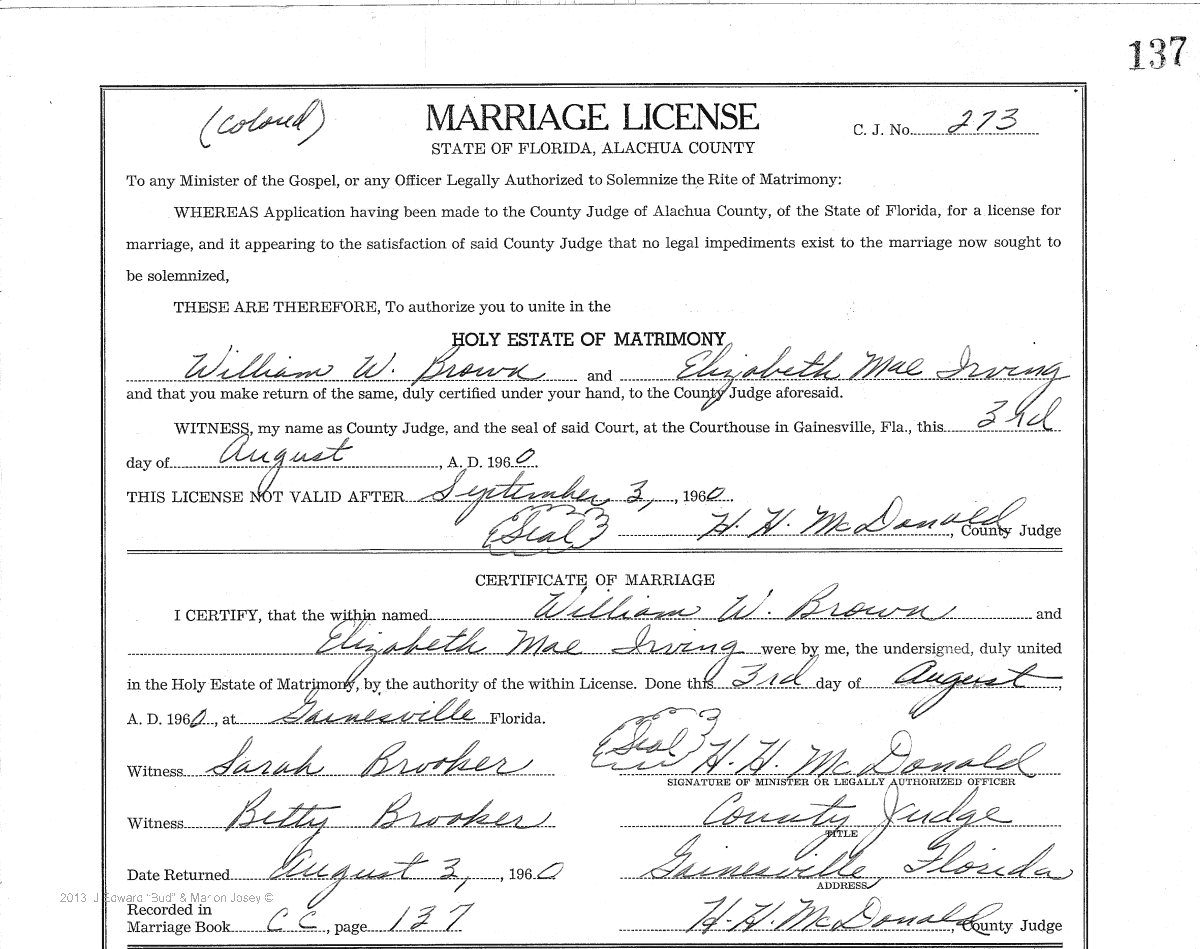 137
(colored)
MARRIAGE LICENSE
C. J. No. 273
STATE OF FLORIDA, ALACHUA COUNTY
To any Minister of the Gospel, or any Officer Legally Authorized to Solemnize the Rite of Matrimony:
WHEREAS Application having been made to the County Judge of Alachua County, of the State of Florida, for a license for
marriage, and it appearing to the satisfaction of said County Judge that no legal impediments exist to the marriage now sought to
be solemnized,
THESE ARE THEREFORE, To authorize you to unite in the
HOLY ESTATE OF MATRIMONY
William W. Brown and Elizabeth Mae Irving
and that you make return of the same, duly certified under your hand, to the County Judge aforesaid.
WITNESS, my name as County Judge, and the seal of said Court, at the Courthouse in Gainesville, Fla., this 3rd
day of August, A. D. 1960.
THIS LICENSE NOT VALID AFTER September 3, 1960.
(Seal) H. H. McDonald, County Judge
CERTIFICATE OF MARRIAGE
I CERTIFY, that the within named William W. Brown and
Elizabeth Mae Irving were by me, the undersigned, duly united
in the Holy Estate of Matrimony, by the authority of the within License. Done this 3rd day of August,
A. D. 1960, at Gainesville Florida.
Witness Sarah Brooker (Seal) H. H. McDonald
SIGNATURE OF MINISTER OR LEGALLY AUTHORIZED OFFICER
Witness Betty Brooker County Judge
TITLE
Date Returned August 3, 1960 Gainesville, Florida
ADDRESS
2013 J Edward "Bud" & Marion Josey ©
Recorded in
Marriage Book CC, page 137 H. H. McDonald, County Judge